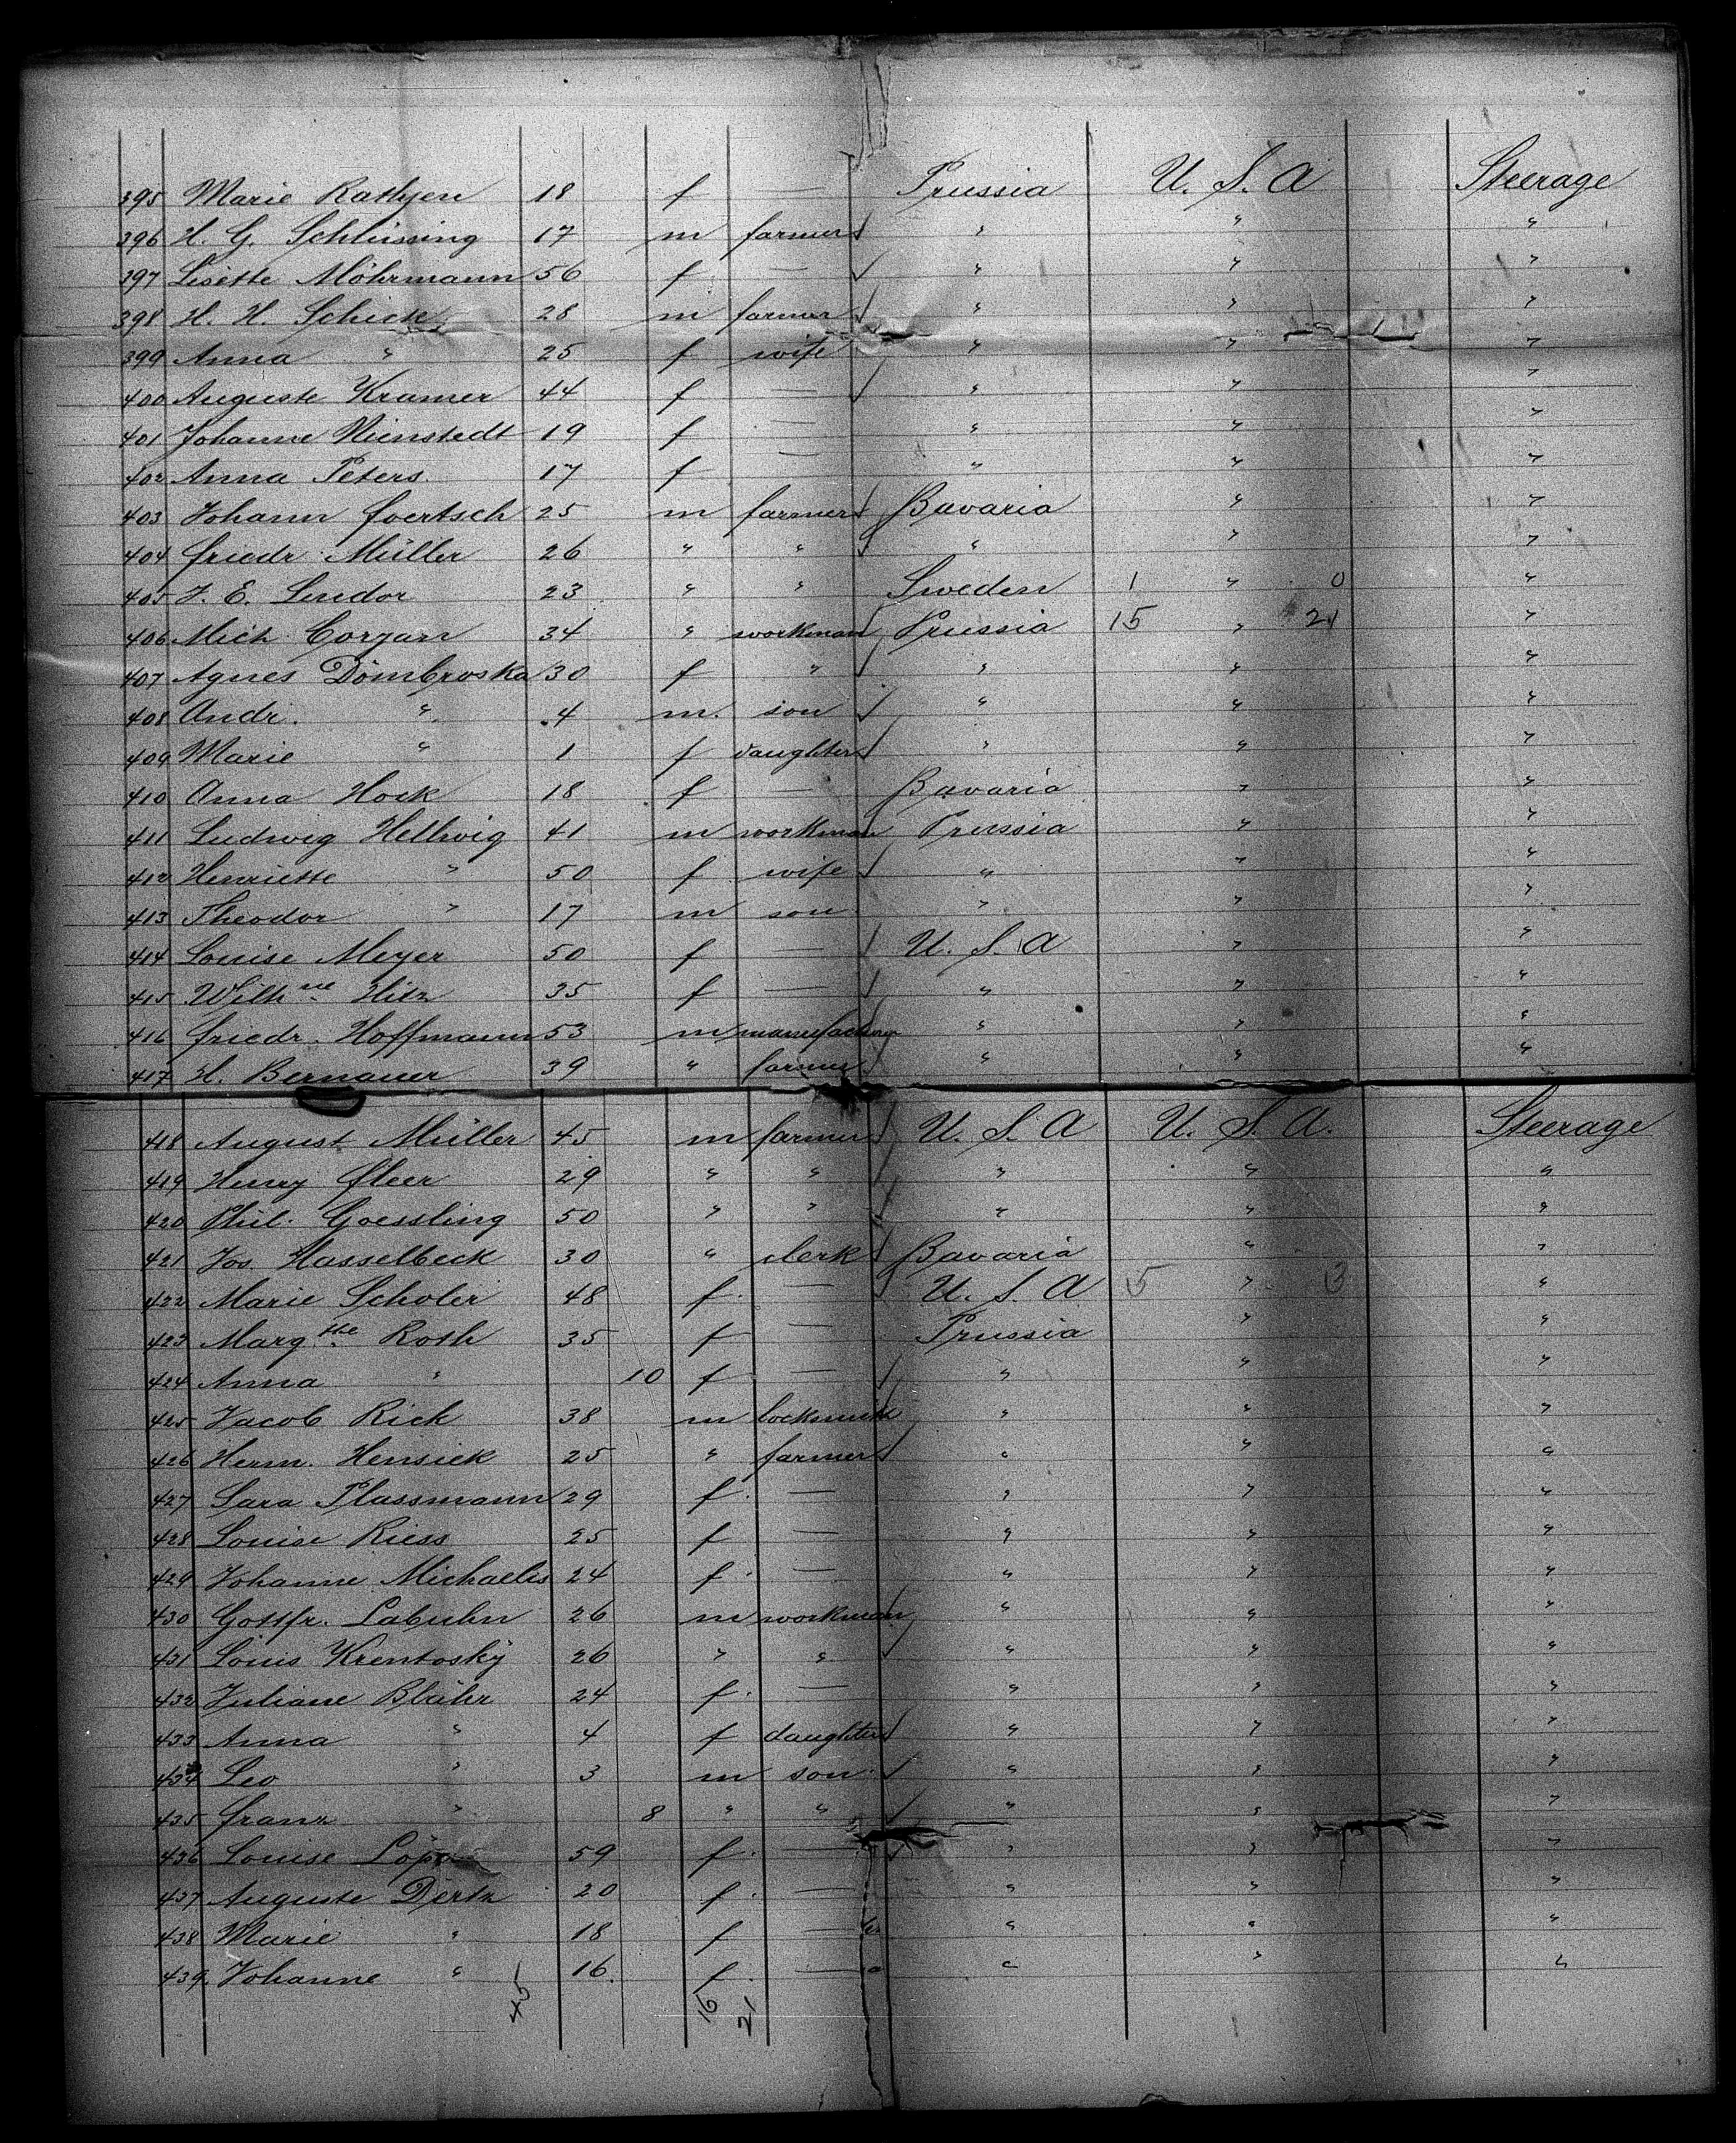 395 Marie Rathjen 18 f — Prussia U. S. A Steerage
396 H. G. Schlüssing 17 m farmer " " "
397 Lisette Möhrmann 56 f — " " "
398 H. H. Schick 28 m farmer " " "
399 Anna " 25 f wife " " "
400 Auguste Kramer 44 f — " " "
401 Johanne Nienstedt 19 f — " " "
402 Anna Peters 17 f — " " "
403 Johann Foertsch 25 m farmer Bavaria " "
404 Friedr. Müller 26 " " " " "
405 J. E. Lindor 23 " " Sweden 1 " 0 "
406 Mich. Corzan 34 " workman Prussia 15 " 21 "
407 Agnes Dombroska 30 f " " " "
408 Andr. " 4 m. son " " "
409 Marie " 1 f daughter " " "
410 Anna Hock 18 f — Bavaria " "
411 Ludwig Hellwig 41 m workman Prussia " "
412 Henriette " 50 f wife " " "
413 Theodor " 17 m son " " "
414 Louise Meyer 50 f — U. S. A " "
415 Wilh.ne Hilz 35 f — " " "
416 Friedr. Hoffmann 53 m " " "
417 H. Bernauer 39 " farmer " " "
418 August Müller 45 m farmer U. S. A U. S. A. Steerage
419 Henry Fleer 29 " " " " "
420 Phil. Goessling 50 " " " " "
421 Jos. Hasselbeck 30 " clerk Bavaria " "
422 Marie Scholer 48 f. — U. S. A 5 " 3 "
423 Marg.the Roth 35 f — Prussia " "
424 Anna " 10 f — " " "
425 Jacob Rick 38 m locksmith " " "
426 Herm. Hensick 25 " farmer " " "
427 Sara Plassmann 29 f. — " " "
428 Louise Riess 25 f — " " "
429 Johanne Michaelis 24 f. — " " "
430 Gottfr. Labuhn 26 m workman " " "
431 Louis Krentosky 26 " " " " "
432 Juliane Blähr 24 f. — " " "
433 Anna " 4 f daughter " " "
434 Leo " 3 m son " " "
435 Franz " 8 " " " " "
436 Louise 59 f. — " " "
437 Auguste Dertz 20 f. — " " "
438 Marie " 18 f — " " "
439. Johanne " 16. f. — " " "
45 16 21